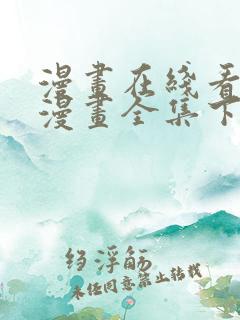 漫畫在綫看
漫畫全集下
約浮觞
未经同意禁止转载